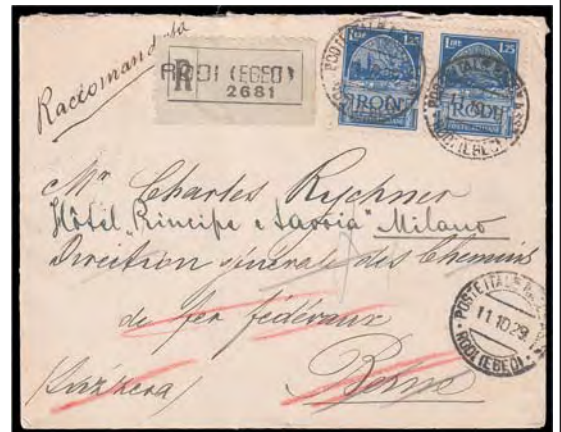 Raccomandata
R
RODI (EGEO)
2681
LIRE 1,25
RODI
POSTE ITALIANE
LIRE 1,25
RODI
POSTE ITALIANE
RODI (EGEO)
Mr Charles Rychner
Hôtel „Principe e Savoia" Milano
Direction générale des Chemins
de fer fédéraux
(Svizzera) Berne
POSTE ITAL
11.10.29
RODI (EGEO)